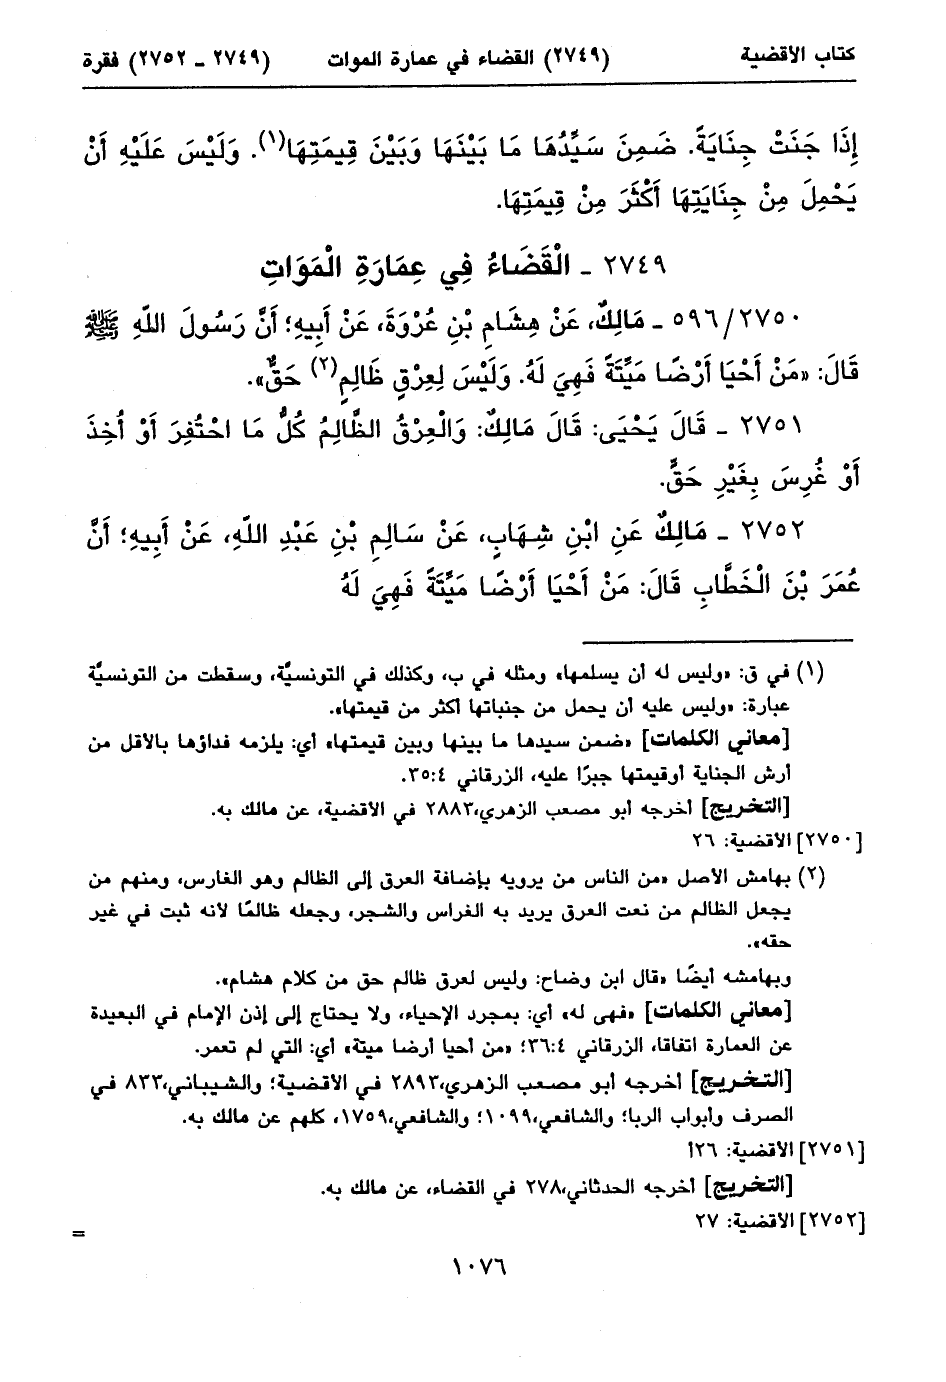 كتاب الأقضية (٢٧٤٩) القضاء في عمارة الموات (٢٧٤٩ ـ ٢٧٥٢) فقرة
إِذَا جَنَتْ جِنَايَةً. ضَمِنَ سَيِّدُهَا مَا بَيْنَهَا وَبَيْنَ قِيمَتِهَا(١). وَلَيْسَ عَلَيْهِ أَنْ
يَحْمِلَ مِنْ جِنَايَتِهَا أَكْثَرَ مِنْ قِيمَتِهَا.
٢٧٤٩ ـ الْقَضَاءُ فِي عِمَارَةِ الْمَوَاتِ
٥٩٦/٢٧٥٠ ـ مَالِكٌ، عَنْ هِشَامِ بْنِ عُرْوَةَ، عَنْ أَبِيهِ؛ أَنَّ رَسُولَ اللهِ ﷺ
قَالَ: «مَنْ أَحْيَا أَرْضًا مَيِّتَةً فَهِيَ لَهُ. وَلَيْسَ لِعِرْقٍ ظَالِمٍ(٢) حَقٌّ».
٢٧٥١ ـ قَالَ يَحْيَى: قَالَ مَالِكٌ: وَالْعِرْقُ الظَّالِمُ كُلُّ مَا احْتُفِرَ أَوْ أُخِذَ
أَوْ غُرِسَ بِغَيْرِ حَقٍّ.
٢٧٥٢ ـ مَالِكٌ عَنِ ابْنِ شِهَابٍ، عَنْ سَالِمِ بْنِ عَبْدِ اللهِ، عَنْ أَبِيهِ؛ أَنَّ
عُمَرَ بْنَ الْخَطَّابِ قَالَ: مَنْ أَحْيَا أَرْضًا مَيِّتَةً فَهِيَ لَهُ
(١) في ق: «وليس له أن يسلمها» ومثله في ب، وكذلك في التونسيَّة، وسقطت من التونسيَّة
عبارة: «وليس عليه أن يحمل من جنباتها أكثر من قيمتها».
[معاني الكلمات] «ضمن سيدها ما بينها وبين قيمتها» أي: يلزمه فداؤها بالأقل من
أرش الجناية أوقيمتها جبرًا عليه، الزرقاني ٣٥:٤.
[التخريج] أخرجه أبو مصعب الزهري،٢٨٨٣ في الأقضية، عن مالك به.
[٢٧٥٠] الأقضية: ٢٦
(٢) بهامش الأصل «من الناس من يرويه بإضافة العرق إلى الظالم وهو الغارس، ومنهم من
يجعل الظالم من نعت العرق يريد به الغراس والشجر، وجعله ظالمًا لأنه ثبت في غير
حقه».
وبهامشه أيضًا «قال ابن وضاح: وليس لعرق ظالم حق من كلام هشام».
[معاني الكلمات] «فهى له» أي: بمجرد الإحياء، ولا يحتاج إلى إذن الإمام في البعيدة
عن العمارة اتفاقا، الزرقاني ٣٦:٤؛ «من أحيا أرضا ميتة» أي: التي لم تعمر.
[التخريج] أخرجه أبو مصعب الزهري،٢٨٩٣ في الأقضية؛ والشيباني،٨٣٣ في
الصرف وأبواب الربا؛ والشافعي،١٠٩٩؛ والشافعي،١٧٥٩، كلهم عن مالك به.
[٢٧٥١] الأقضية: ٢٦أ
[التخريج] أخرجه الحدثاني،٢٧٨ في القضاء، عن مالك به.
[٢٧٥٢] الأقضية: ٢٧
=
١٠٧٦